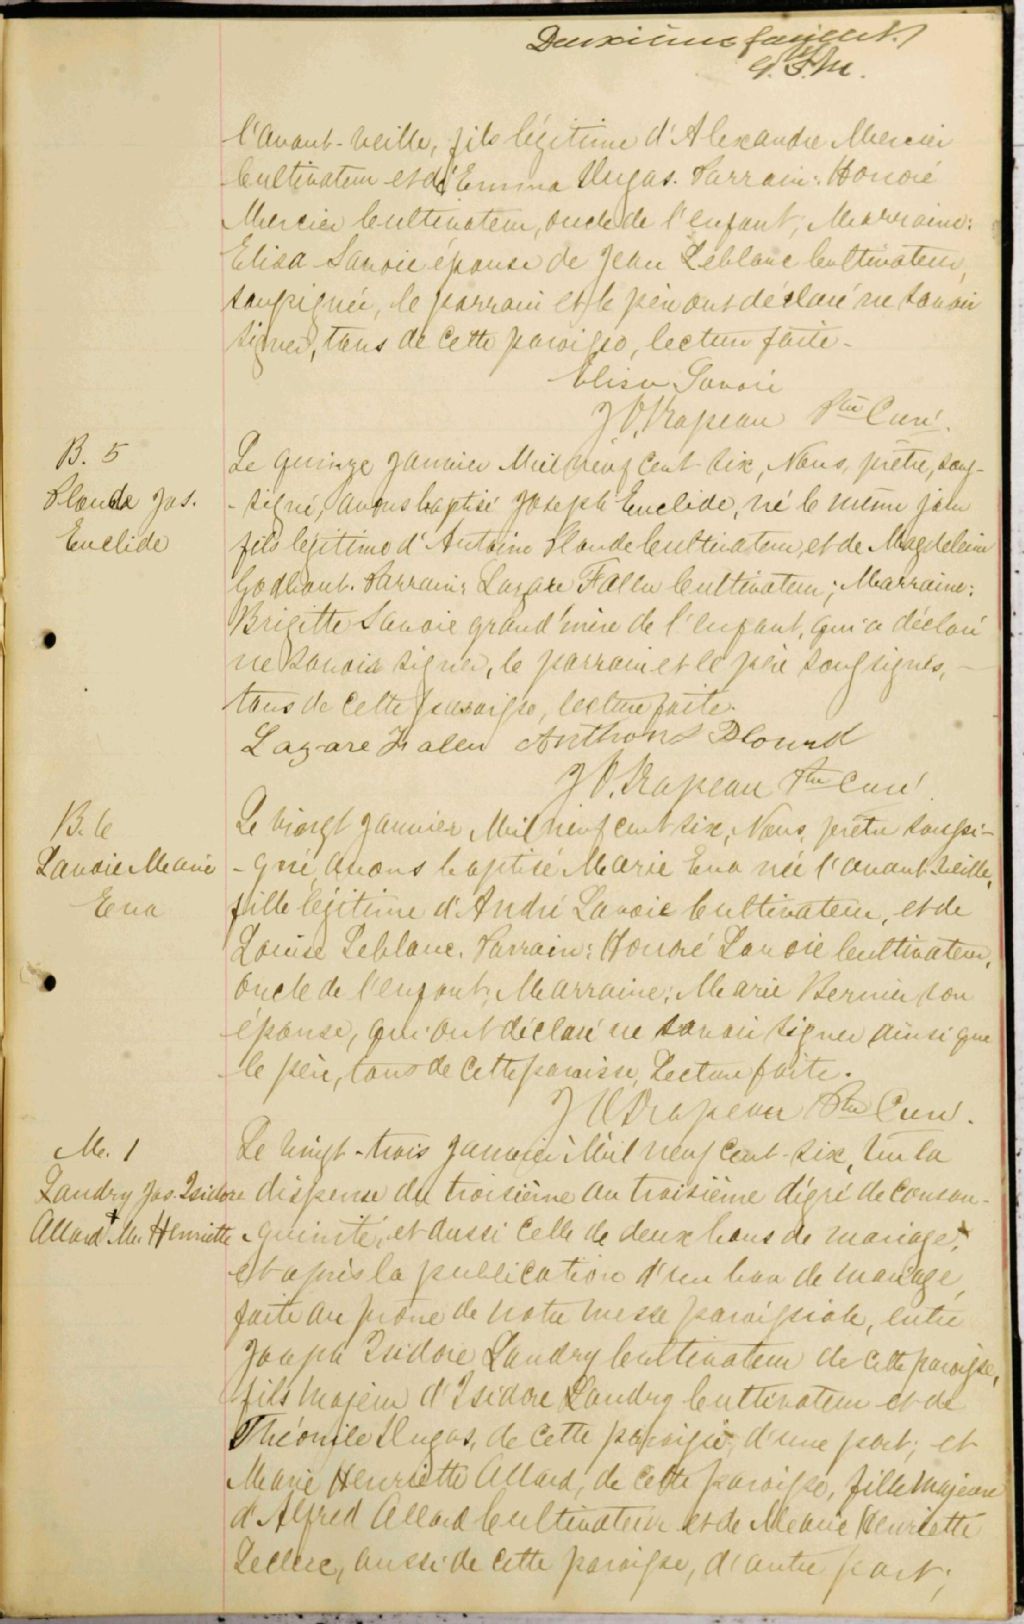 Deuxième feuillet.
l'avant-veille, fils légitime d'Alexandre Mercier
Cultivateur et d'Emma Dugas. Parrain: Honoré
Mercier Cultivateur, oncle de l'enfant, Marraine:
Elisa Savoie épouse de Jean Leblanc Cultivateur,
soussignée, le parrain et le père ont déclaré ne savoir
signer, tous de cette paroisse, lecture faite.
Elisa Savoie
J O Drapeau Ptre Curé.
B. 5
Plourde Jos.
Euclide
Le quinze Janvier Mil neuf cent six, Nous, prêtre, sous-
-signé, avons baptisé Joseph Euclide, né le même jour
fils légitime d'Antoine Plourde Cultivateur, et de Magdeleine
Godbout. Parrain: Lazare Fallu Cultivateur; Marraine:
Brigitte Savoie grand'mère de l'enfant, qui a déclaré
ne savoir signer, le parrain et le père soussignés,
tous de cette paroisse, lecture faite.
Lazare Fallu Anthony Plourd
J O. Drapeau Ptre Curé
B. 6
Savoie Marie
Eva
Le vingt Janvier Mil neuf cent six, Nous, prêtre soussi-
-gné, avons baptisé Marie Eva née l'avant-veille,
fille légitime d'André Savoie Cultivateur, et de
Louise Leblanc. Parrain: Honoré Savoie Cultivateur,
oncle de l'enfant, Marraine: Marie Bernier son
épouse, qui ont déclaré ne savoir signer ainsi que
le père, tous de cette paroisse, Lecture faite.
J O Drapeau Ptre Curé.
M. 1
Landry Jos. Isidore
Allard + M. Henriette
Le vingt-trois Janvier Mil neuf cent-six, Vu la
dispense du troisième au troisième dégré de consan-
-guinité, et aussi celle de deux bans de mariage,
et après la publication d'un ban de mariage,
faite au prône de notre messe paroissiale, entre
Joseph Isidore Landry Cultivateur de cette paroisse,
fils majeur d'Isidore Landry Cultivateur et de
Théonile Dugas, de cette paroisse, d'une part; et
Marie Henriette Allard, de cette paroisse, fille majeure
d'Alfred Allard Cultivateur et de Marie Henriette
Leclerc, aussi de cette paroisse, d'autre part;